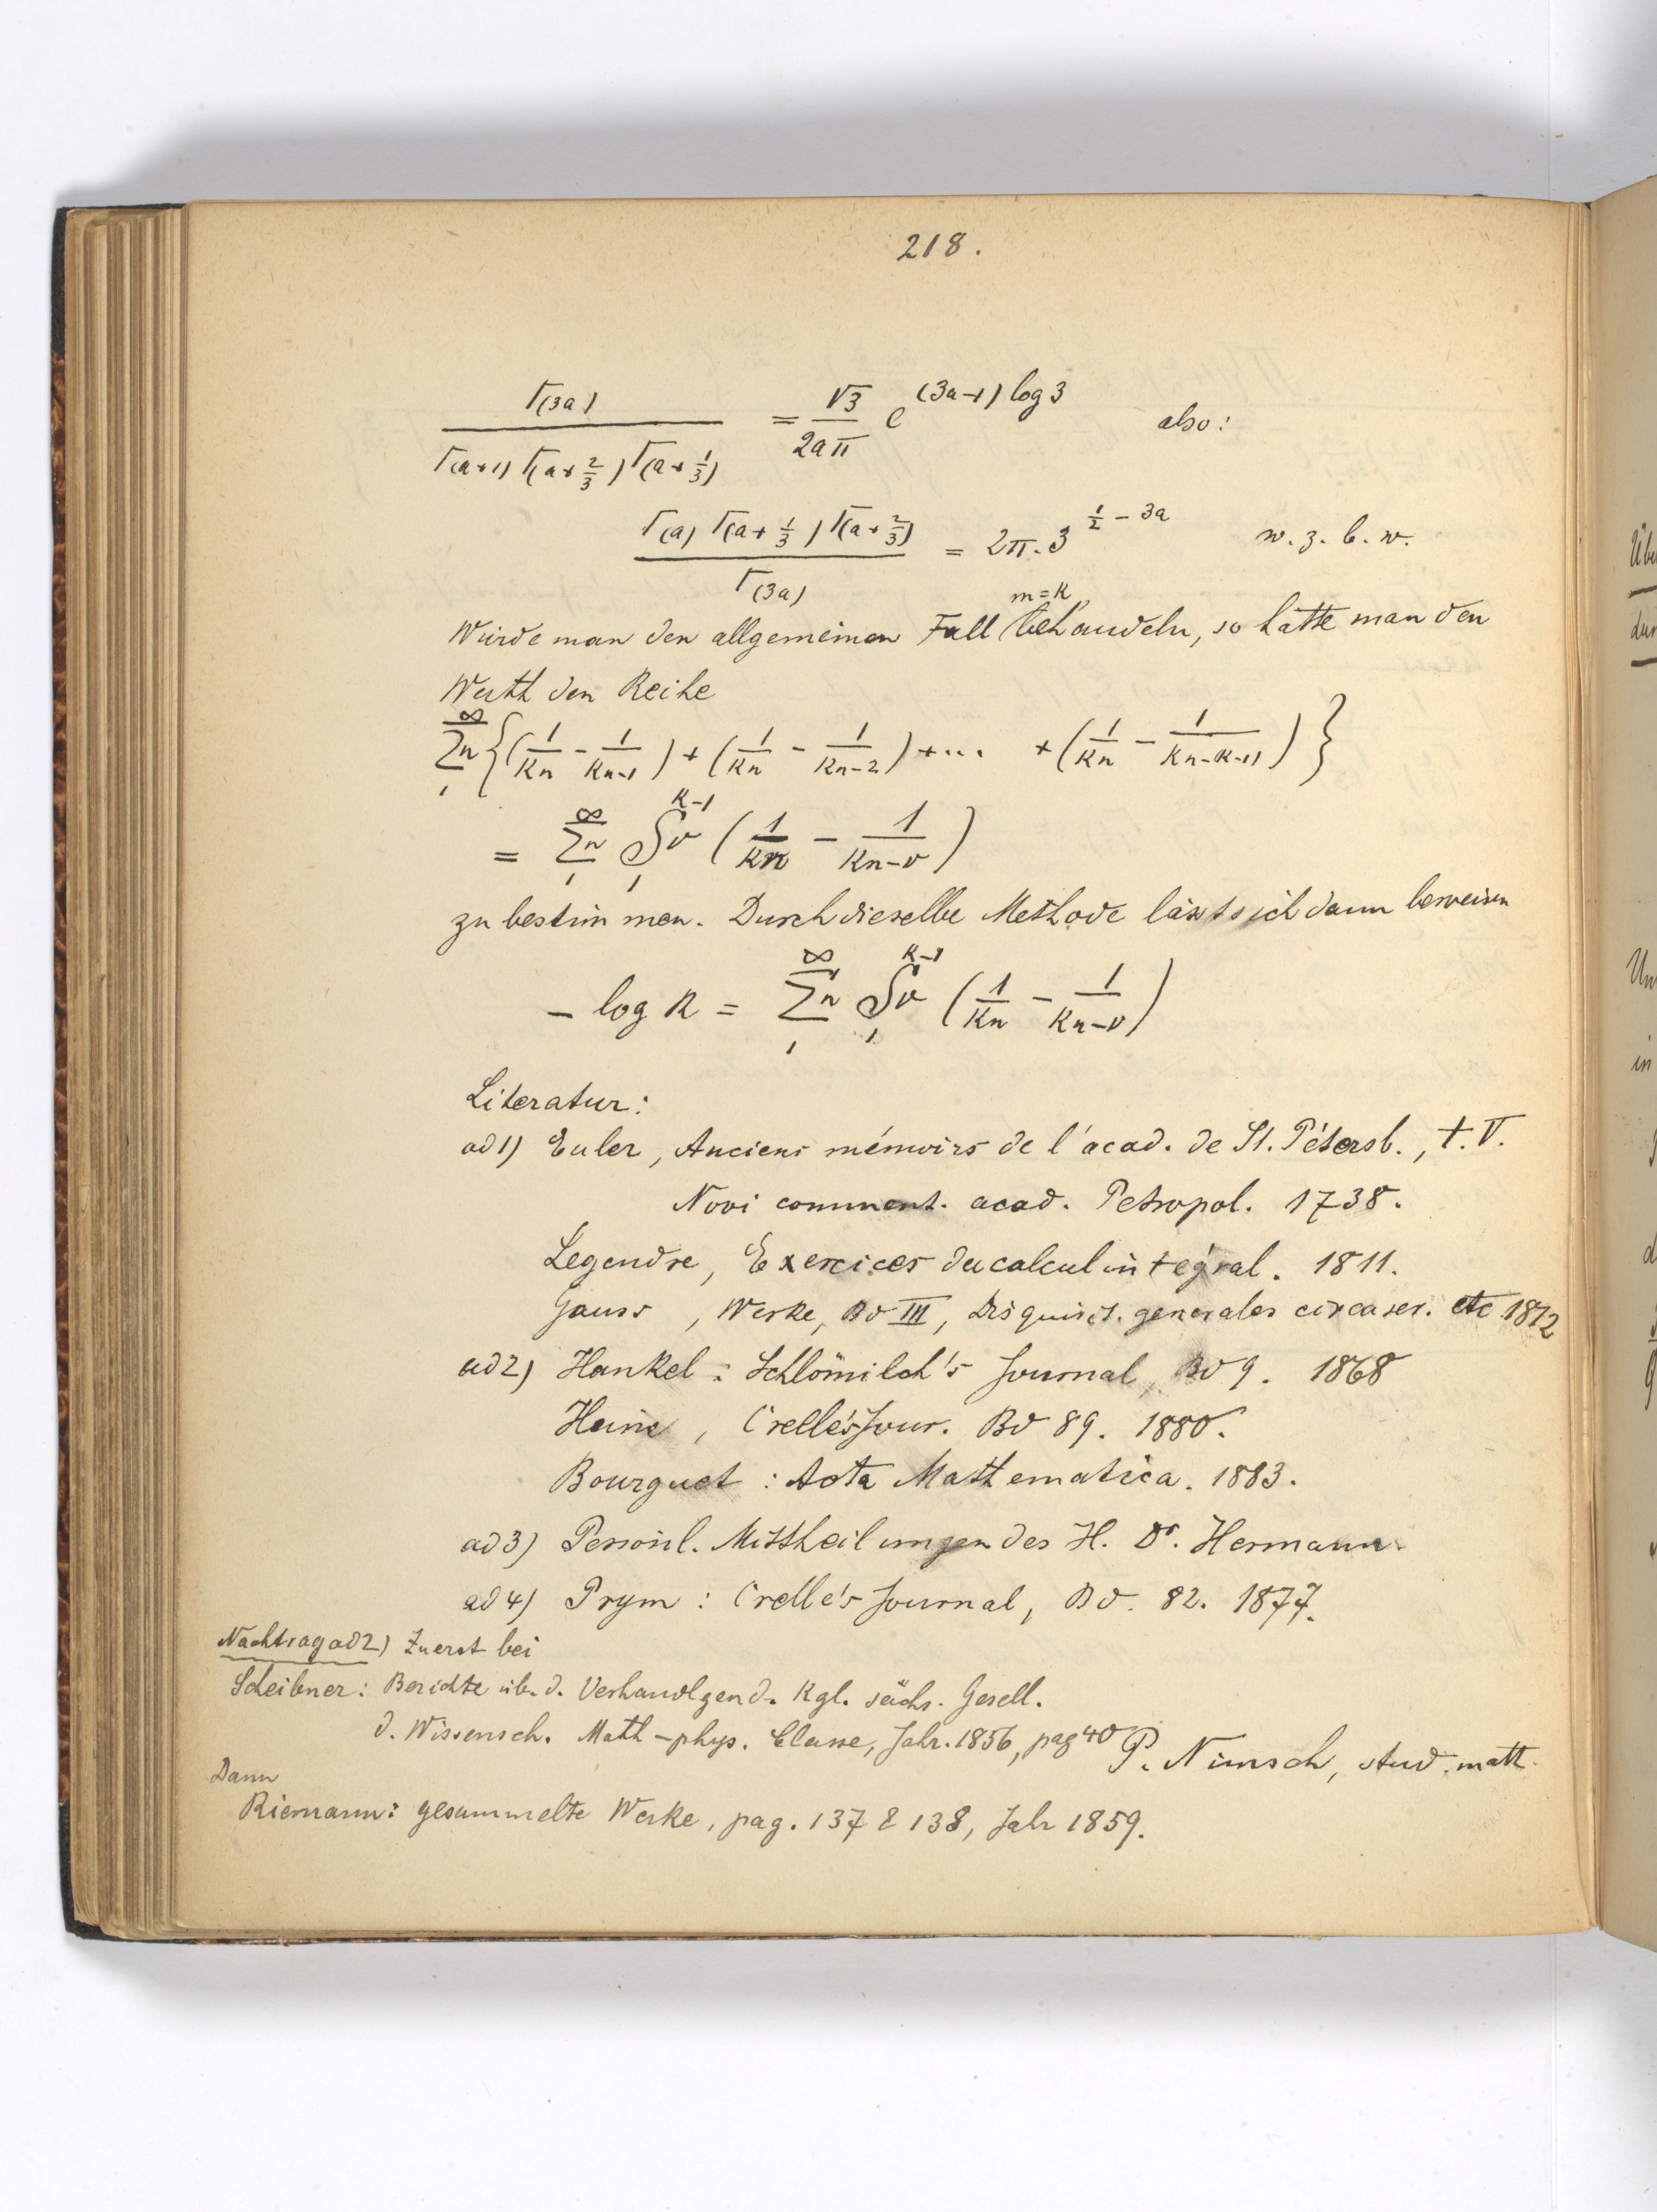 218.
Γ(3a) / Γ(a+1) Γ(a+2/3) Γ(a+1/3) = √3 / 2aπ e^((3a-1) log 3) also:
Γ(a) Γ(a+1/3) Γ(a+2/3) / Γ(3a) = 2π.3^(1/2 - 3a) w. z. b. w.
m=k
Würde man den allgemeinen Fall behandeln, so hätte man den
Werth der Reihe
∞Σn1 {(1/kn - 1/kn-1) + (1/kn - 1/kn-2) + ... + (1/kn - 1/kn-k+1)}
= ∞Σn1 k-1Sν1 (1/kn - 1/kn-ν)
zu bestimmen. Durch dieselbe Methode lässt sich dann beweisen
- log k = ∞Σn1 k-1Sν1 (1/kn - 1/kn-ν)
Literatur:
ad 1) Euler, Anciens mémoirs de l'acad. de St. Pétersb., t. V.
Novi comment. acad. Petropol. 1738.
Legendre, Exercices du calcul intégral. 1811.
Gauss, Werke, Bd III, Disquisit. generales circa ser. etc 1812
ad 2) Hankel: Schlömilch's Journal, Bd 9. 1868
Heine, Crelle's Jour. Bd 89. 1880.
Bourguet: Acta Mathematica. 1883.
ad 3) Persönl. Mittheilungen des H. Dr. Hermann.
ad 4) Prym: Crelle's Journal, Bd. 82. 1877.
Nachtrag ad 2) Zuerst bei
Scheibner: Berichte üb. d. Verhandlgen d. Kgl. sächs. Gesell.
d. Wissensch. Math-phys. Classe, Jahr. 1856, pag 40
P. Nimsch, stud. math.
Dann
Riemann: gesammelte Werke, pag. 137 & 138, Jahr 1859.